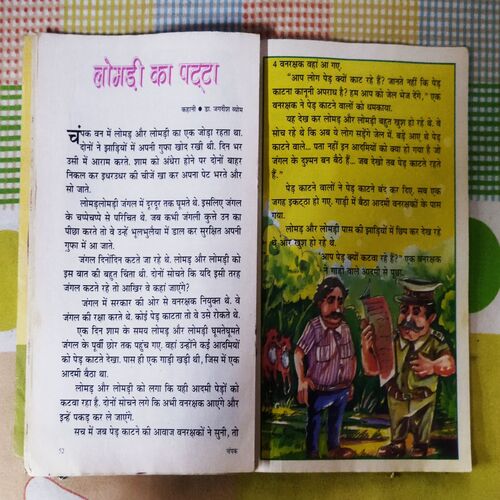 लोमड़ी का पट्टा
कहानी • डा. जगदीश व्योम
चंपक वन में लोमड़ और लोमड़ी का एक जोड़ा रहता था.
दोनों ने झाड़ियों में अपनी गुफा खोद रखी थी. दिन भर
उसी में आराम करते. शाम को अंधेरा होने पर दोनों बाहर
निकल कर इधरउधर की चीजें खा कर अपना पेट भरते और
सो जाते.
लोमड़लोमड़ी जंगल में दूरदूर तक घूमते थे. इसलिए जंगल
के चप्पेचप्पे से परिचित थे. जब कभी जंगली कुत्ते उन का
पीछा करते तो वे उन्हें भूलभुलैया में डाल कर सुरक्षित अपनी
गुफा में आ जाते.
जंगल दिनोंदिन कटते जा रहे थे. लोमड़ और लोमड़ी को
इस बात की बहुत चिंता थी. दोनों सोचते कि यदि इसी तरह
जंगल कटते रहे तो आखिर वे कहां जाएंगे?
जंगल में सरकार की ओर से वनरक्षक नियुक्त थे. वे
जंगल की रक्षा करते थे. कोई पेड़ काटता तो वे उसे रोकते थे.
एक दिन शाम के समय लोमड़ और लोमड़ी घूमतेघूमते
जंगल के पूर्वी छोर तक पहुंच गए. वहां उन्होंने कई आदमियों
को पेड़ काटते देखा. पास ही एक गाड़ी खड़ी थी, जिस में एक
आदमी बैठा था.
लोमड़ और लोमड़ी को लगा कि यही आदमी पेड़ों को
कटवा रहा है. दोनों सोचने लगे कि अभी वनरक्षक आएंगे और
इन्हें पकड़ कर ले जाएंगे.
सच में जब पेड़ काटने की आवाज वनरक्षकों ने सुनी, तो
52
चंपक
4 वनरक्षक वहां आ गए.
"आप लोग पेड़ क्यों काट रहे हैं? जानते नहीं कि पेड़
काटना कानूनी अपराध है? हम आप को जेल भेज देंगे," एक
वनरक्षक ने पेड़ काटने वालों को धमकाया.
यह देख कर लोमड़ और लोमड़ी बहुत खुश हो रहे थे. वे
सोच रहे थे कि अब ये लोग सड़ेंगे जेल में. बड़े आए थे पेड़
काटने वाले... पता नहीं इन आदमियों को क्या हो गया है जो
जंगल के दुश्मन बन बैठे हैं... जब देखो तब पेड़ काटते रहते
हैं."
पेड़ काटने वालों ने पेड़ काटने बंद कर दिए. सब एक
जगह इकट्ठा हो गए. गाड़ी में बैठा आदमी वनरक्षकों के पास
गया.
लोमड़ और लोमड़ी पास की झाड़ियों में छिप कर देख रहे
थे और खुश हो रहे थे.
"आप पेड़ क्यों कटवा रहे हैं?" एक वनरक्षक
ने गाड़ी वाले आदमी से पूछा.